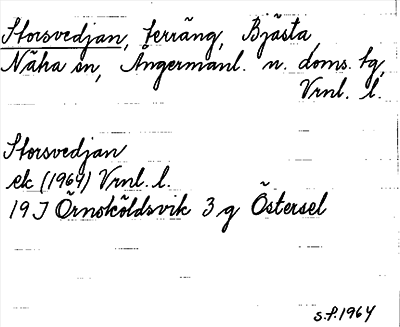 Storsvedjan, terräng, Bjästa
Näha sn, Ångermanl. n. doms. tg,
Vrnl. l.
Storsvedjan
ek (1964) Vrnl. l.
19 J Örnsköldsvik 3 g Östersel
S.F. 1964